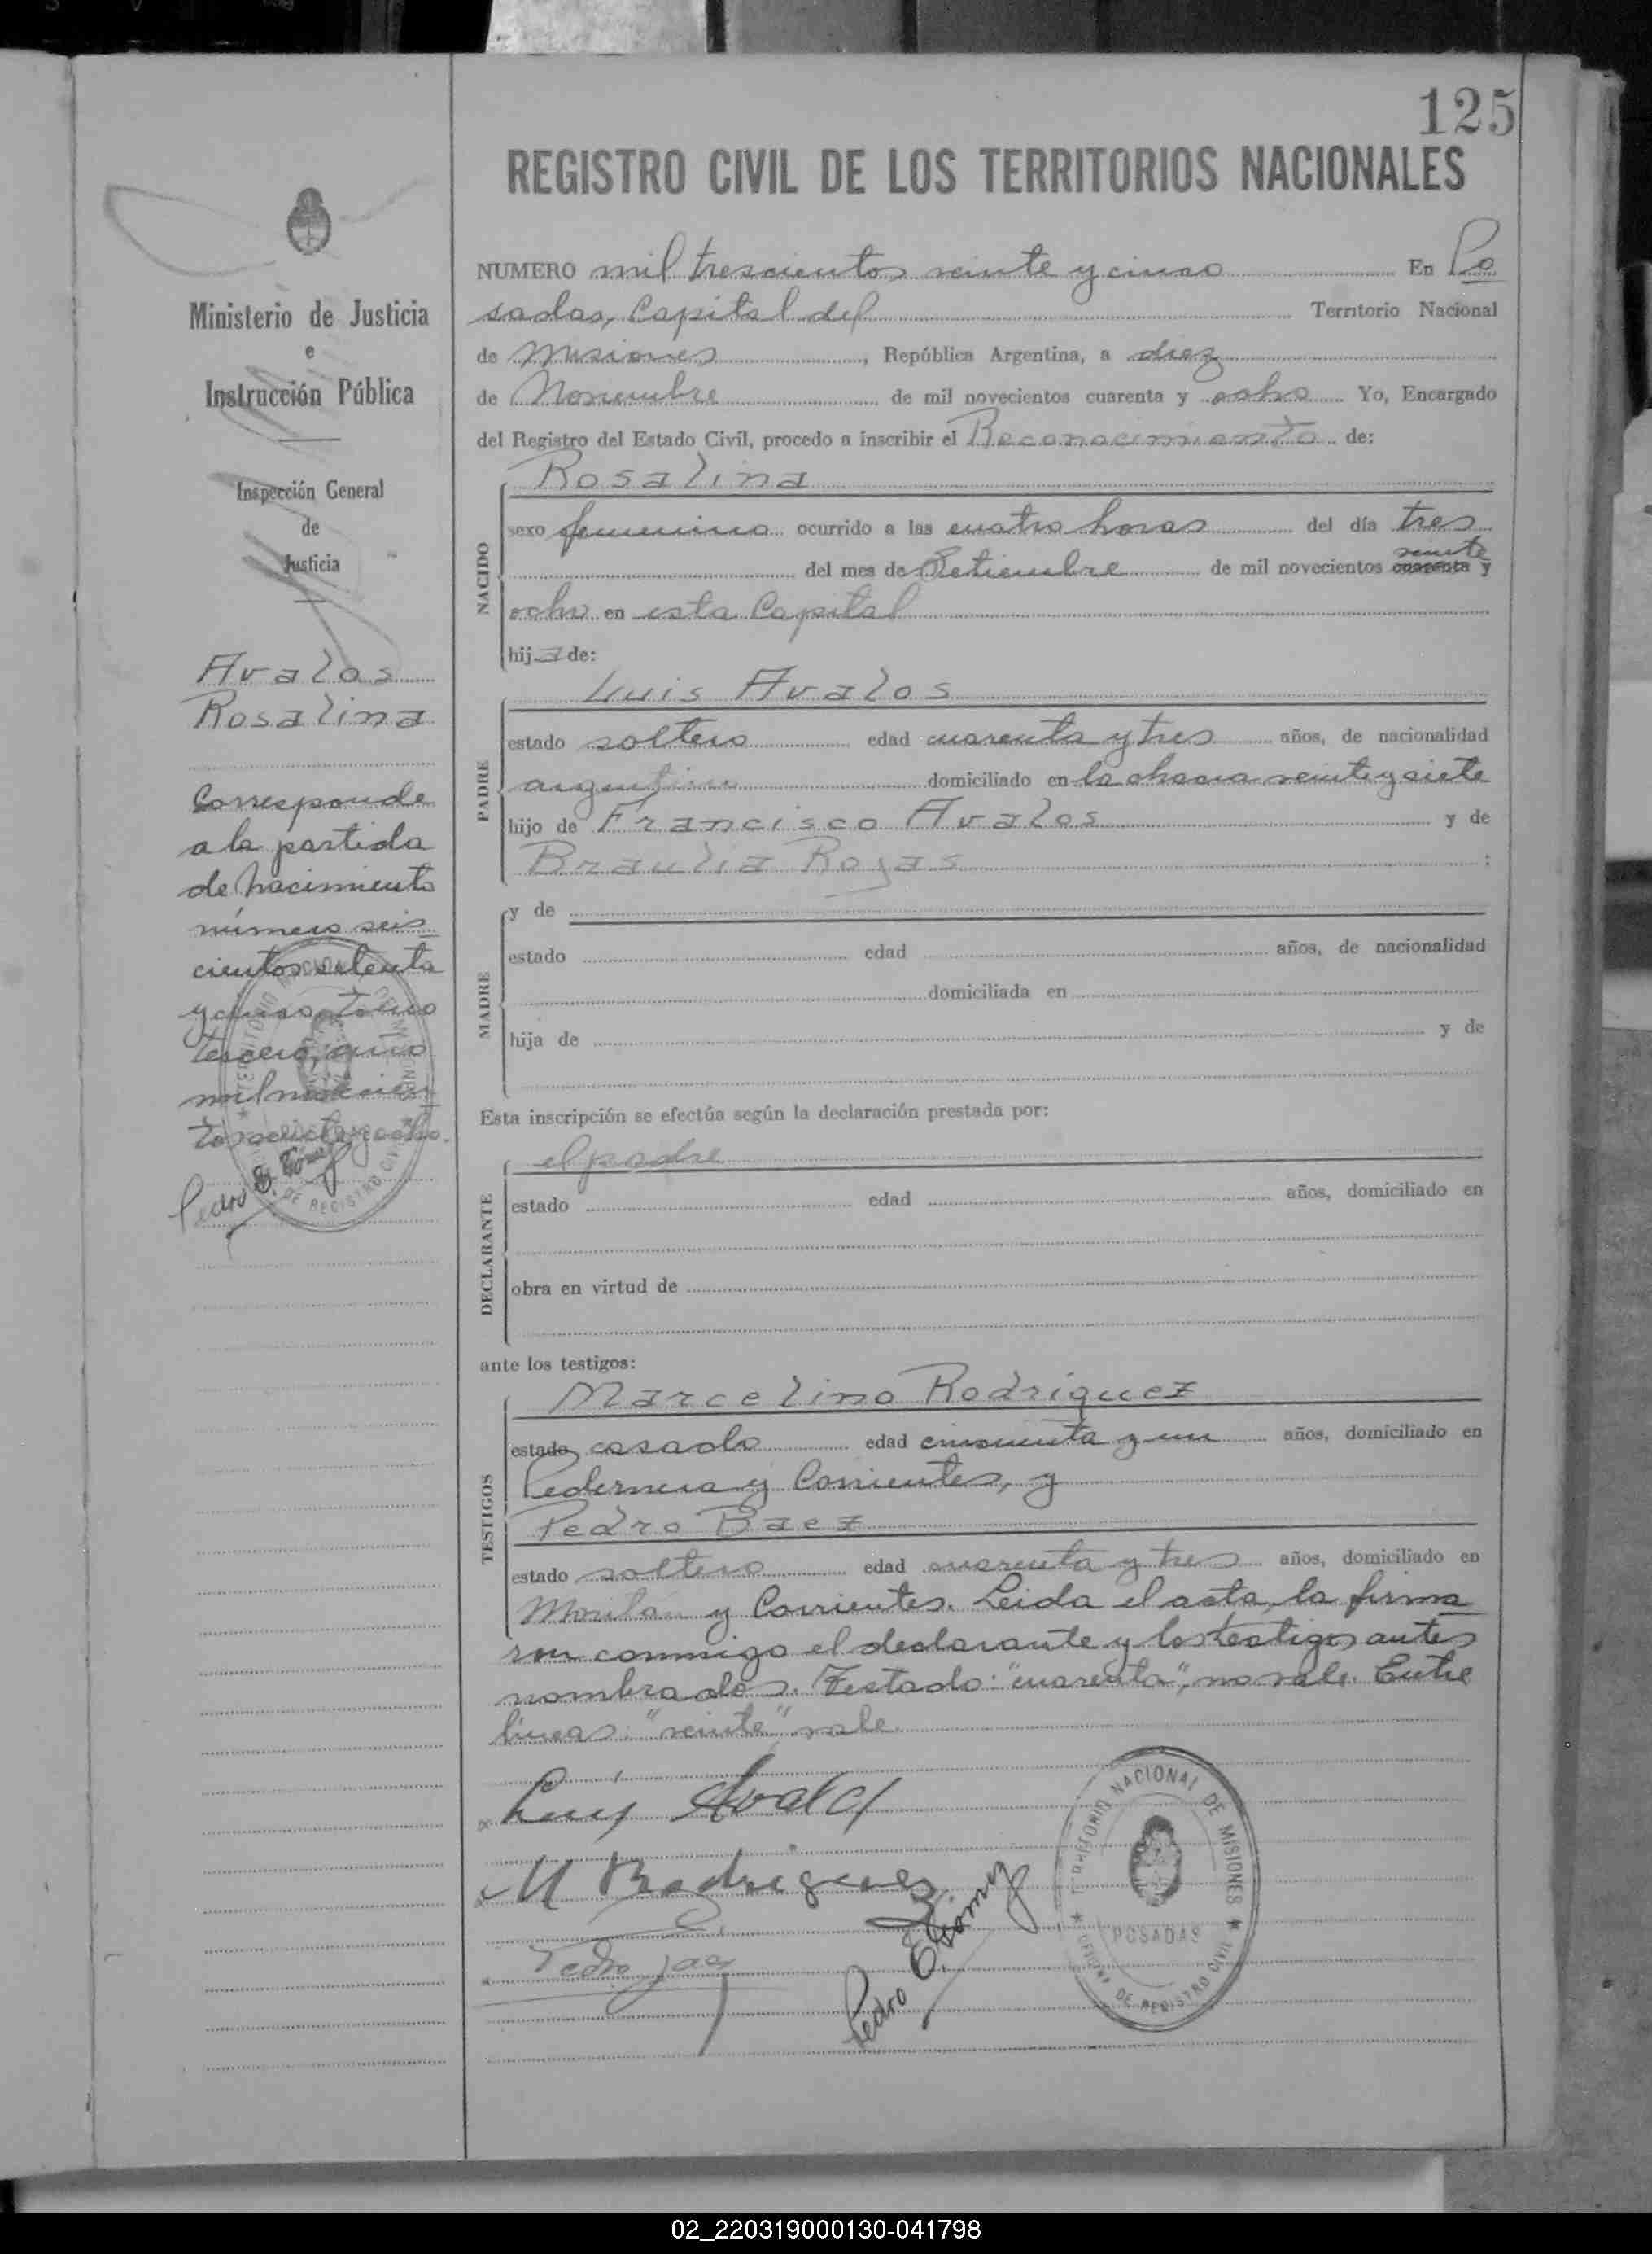 125
REGISTRO CIVIL DE LOS TERRITORIOS NACIONALES
Ministerio de Justicia
e
Instrucción Pública
Inspección General
de
Justicia
Avalos
Rosalina
Corresponde
a la partida
de nacimiento
número seis
cientos setenta
y cinco, tomo
tercero, año
mil novecien
tos veinte y ocho.
Pedro E. Gómez
NUMERO mil trescientos veinte y cinco En Po
sadas, Capital del Territorio Nacional
de Misiones, República Argentina, a diez
de Noviembre de mil novecientos cuarenta y ocho Yo, Encargado
del Registro del Estado Civil, procedo a inscribir el Reconocimiento de:
NACIDO
Rosalina
sexo femenino ocurrido a las cuatro horas del día tres
veinte
del mes de Setiembre de mil novecientos cuarenta y
ocho en esta Capital
hija de:
PADRE
Luis Avalos
estado soltero edad cuarenta y tres años, de nacionalidad
argentino domiciliado en la chacra veinte y siete
hijo de Francisco Avalos y de
Braulia Rojas :
MADRE
y de
estado edad años, de nacionalidad
domiciliada en
hija de y de
Esta inscripción se efectúa según la declaración prestada por:
DECLARANTE
el padre
estado edad años, domiciliado en
obra en virtud de
ante los testigos:
TESTIGOS
Marcelino Rodriguez
estado casado edad cincuenta y un años, domiciliado en
Pedernera y Corrientes, y
Pedro Baez
estado soltero edad cuarenta y tres años, domiciliado en
y Corrientes. Leida el acta, la firma
ron conmigo el declarante y los testigos antes
nombrados. Testado: "cuarenta", no vale. Entre
lineas: "veinte" vale.
Luis Avalos
M Rodriguez
Pedro
Pedro E. Gómez
TERRITORIO NACIONAL DE MISIONES
POSADAS
OFICINA DE REGISTRO CIVIL
02_220319000130-041798